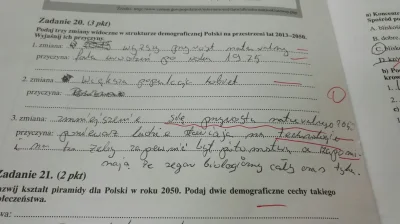 Zadanie 20. (3 pkt)
Podaj trzy zmiany widoczne w strukturze demograficznej Polski na przestrzeni lat 2013–2050.
Wyjaśnij ich przyczyny.
1. zmiana: wyższy przyrost naturalny
przyczyna: Fala urodzeń po roku 1925
2. zmiana: większa populacja kobiet
przyczyna:
3. zmiana: zmniejszenie się przyrostu naturalnego
przyczyna: ponieważ ludzie stawiają na technologie
i na to żeby zapewnić byt potomstwu a zapomi-
nają że zegar biologiczny cały czas tyka.
Zadanie 21. (2 pkt)
kształt piramidy dla Polski w roku 2050. Podaj dwie demograficzne cechy takiego